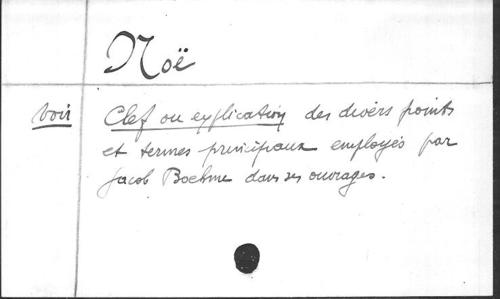 Noë
voir Clef ou explication des divers points
et termes principaux employés par
Jacob Boehme dans ses ouvrages.